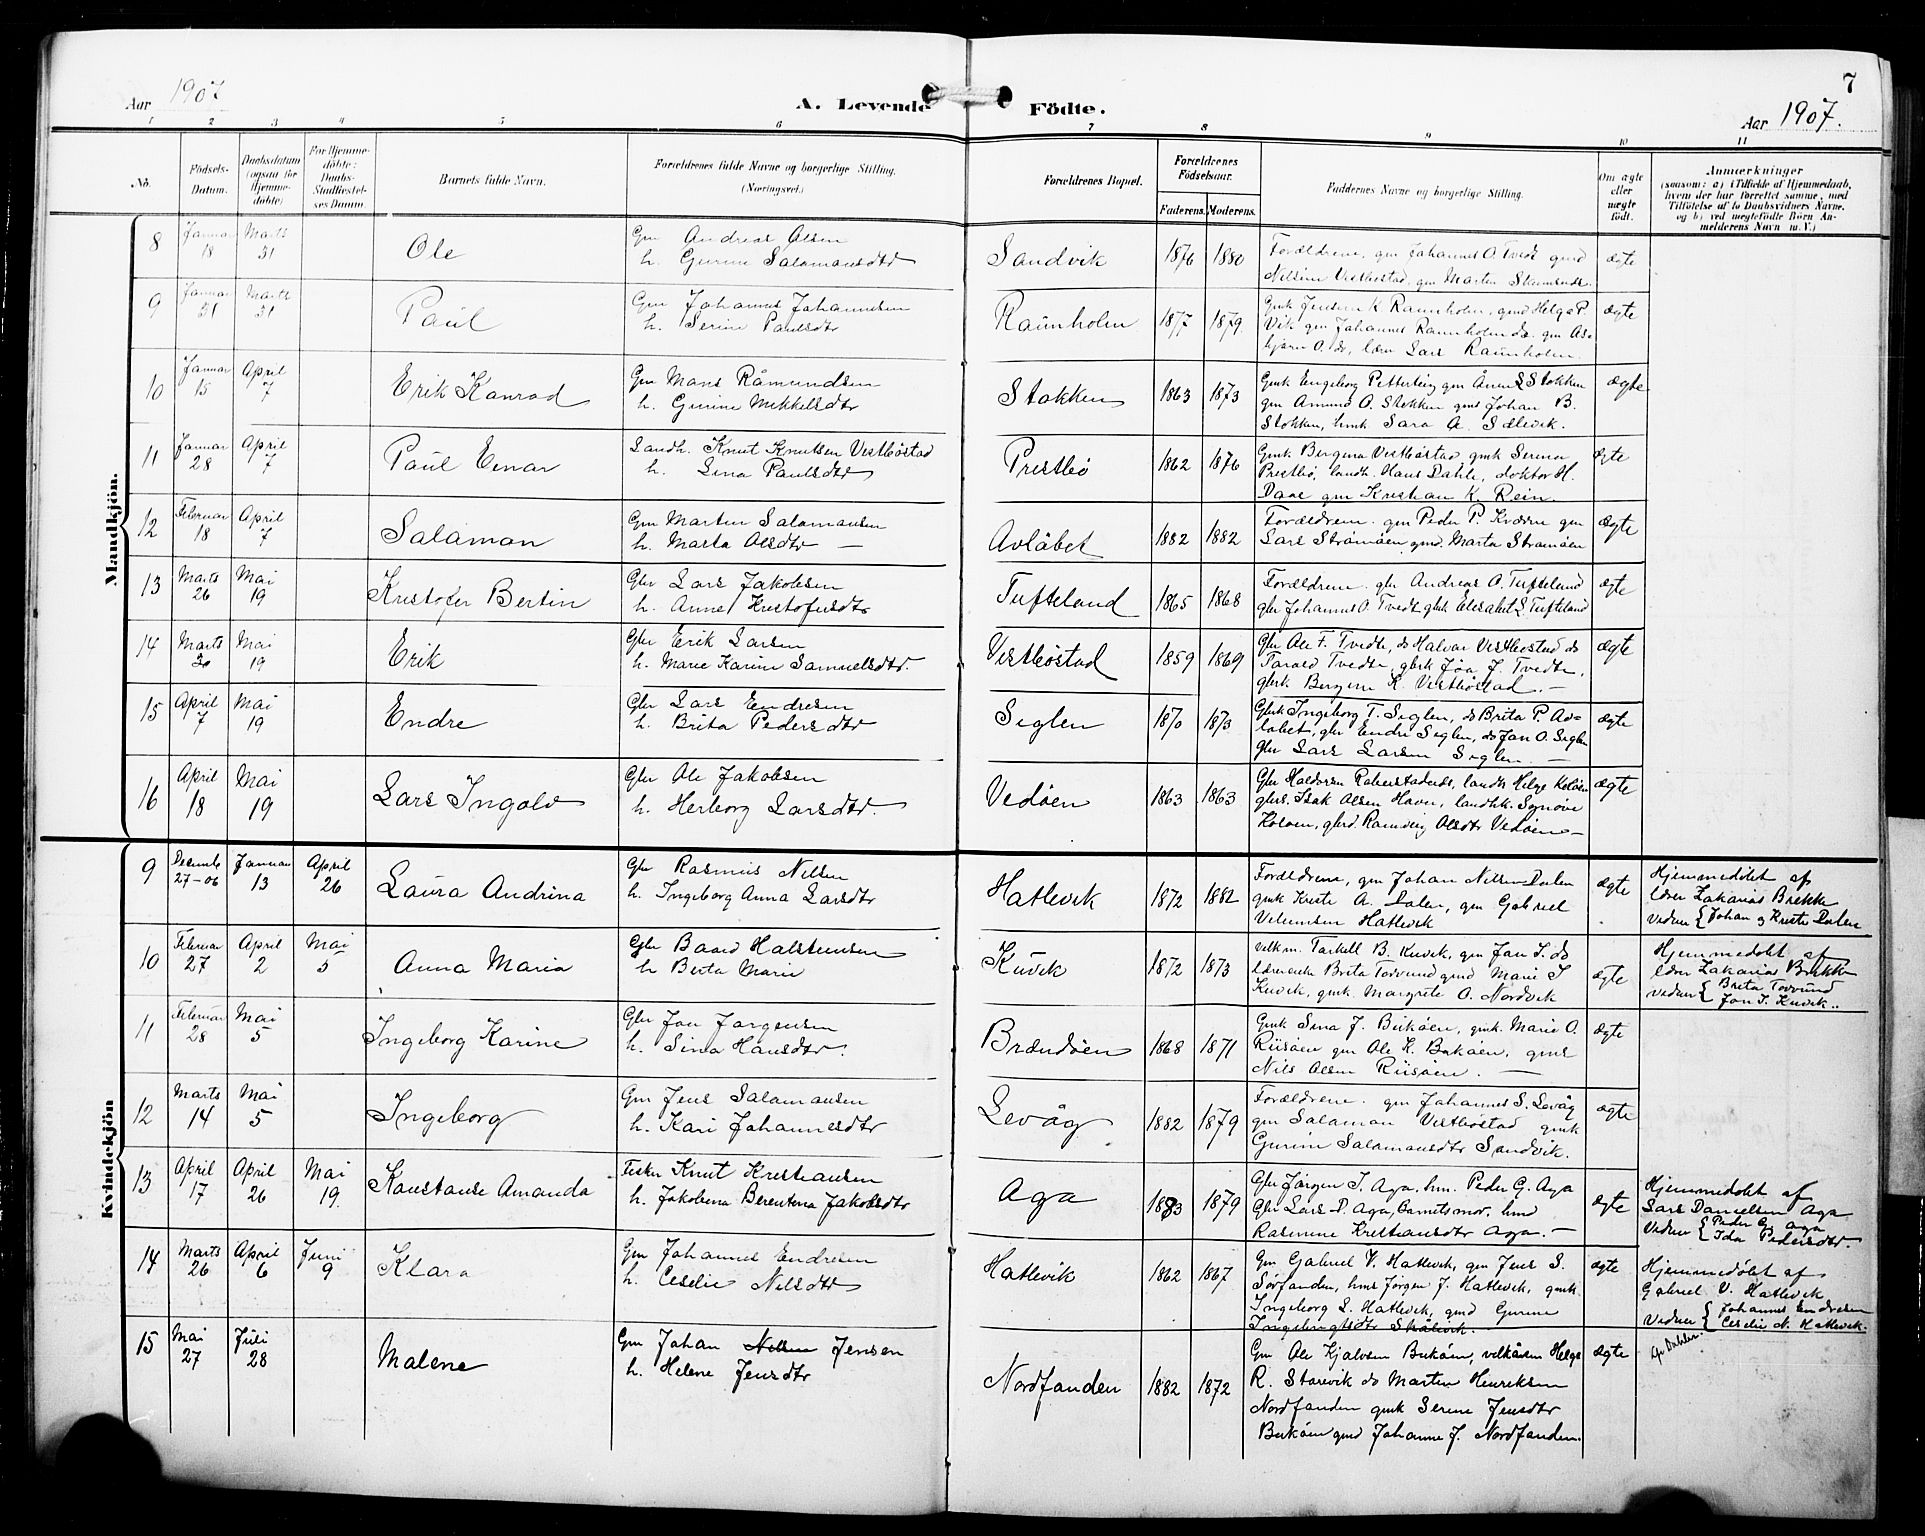 Aar 1907
A. Levende Födte.
7
Aar 1907.
1 2 3 4 5 6 7 8 9 10 11
No.
Födsels-Datum.
Daabsdatum (ogsaa for Hjemme-döbte)
For Hjemme-döbte: Daabs-Stadfæstel-ses Datum.
Barnets fulde Navn.
Forældrenes fulde Navne og borgerlige Stilling. (Næringsvei.)
Forældrenes Bopæl.
Forældrenes Födselsaar.
Faderens. Moderens.
Faddernes Navne og borgerlige Stilling.
Om ægte eller uægte födt.
Anmærkninger
(saasom: a) i Tilfælde af Hjemmedaab,
hvem der har forrettet samme, med
Tilföielse af to Daabsvidners Navne,
og b) ved uægtefödte Börn An-
melderens Navn m. V.)
Mandkjön.
8 Januar 18 Marts 31 Ole
Gm Andreas Olsen
h. Gurine Salamonsdtr
Sandvik 1876 1880
Forældrene, gm Johannes O. Tvedt gmd
Nelsine Vestbøstad, gm Marten
ægte
9 Januar 31 Marts 31 Paul
Gm Johannes Johannesen
h. Serine Paulsdtr
Raunholm 1877 1879.
Gmk Jensine K Raunholm, gmd Helge P.
Vik gm Johannes Raunholm ds. gm As-
bjørn O. ds, lærer Lars Raunholm.
ægte
10 Januar 15 April 7 Erik Konrad
Gm Mons Råmundsen
h. Gurine Mikkelsdtr
Stokken 1863 1873
Gmk Engeborg Petterteig gm Ånen S Stokken
gm Amund O. Stokken gms Johan B.
Stokken, hmk Sara A. Sælevik.
ægte
11 Januar 28 April 7 Paul Einar
Landh. Knut Knutsen Vestbøstad
h. Lina Paulsdtr
Prestbø 1862 1876
Gmk Bergina Vestbøstad gmk Serina
Prestbø, landh. Hans Dahle, doktor H.
Daae gm Kristian K. Rein.
ægte
12 Februar 18 April 7 Salamon
Gm Martin Salamonsen
h. Marta Olsdtr —
Avløbet 1882 1882
Forældrene. gm Peder P. Kværne gm
Lars Strømøen gmd. Marta Strømøen
ægte
13 Marts 26 Mai 19 Kristofer Bertin
Gbr Lars Jakobsen
h. Anne Kristofersdtr
Tufteland 1865 1868
Forældrene. gbr Andreas O. Tufteland
gbr Johannes O. Tvedt gbk Elisabet L Tufteland
ægte
14 Marts 30 Mai 19 Erik
Gbr Erik Larsen
h. Marie Karine Samuelsdtr.
Vestbøstad 1859 1869
Gbr Ole F. Tvedte, ds Halvor Vestbøstad ds
Tarald Tvedte, gbrk Jøa J. Tvedte,
gbrk Bergine K. Vestbøstad. —
ægte
15 April 7 Mai 19 Endre
Gbr Lars Endresen
h. Brita Pedersdtr
Seglen 1870 1873
Gbrk Ingeborg T. Seglen, ds Brita P. Av-
løbet, gbr Endre Seglen, ds Jan O. Seglen
gbr Lars Larsen Seglen. —
ægte
16 April 18 Mai 19 Lars Ingolv
Gbr Ole Jakobsen
h. Herborg Larsdtr.
Vedøen 1863 1863
Gbr Haldorsen, landh. Helge Koløen
gbrs. Isak Olsen Havn, landhk. Synnøve
Koløen, gbrd. Ranveig Olsdtr Vedøen —
ægte
Kvindekjön
9 Decembr 27-06 Januar 13 April 26 Laura Andrina
Gbr Rasmus Nilsen
h. Ingeborg Anna Larsdtr
Hatlevik 1872 1882
Forældrene, gm Johan Nilsen Dalen
gmk Kristi A. Dalen, gm Gabriel
Velumsen Hatlevik
ægte
Hjemmedøbt af
lærer Zakarias Brekke
vidner { Johan og Kristi Dalen
10 Februar 27 April 2 Mai 5 Anna Maria
Gbr Baard Halsteinsen
h Berta Marie
Kuvik 1872 1873
Ulkm. Tarkell B. Kuvik, gm Jan I. ds
lærerenke Brita Torvund gmd Marie I
Kuvik, gmk. Margrete O. Nordvik
ægte
Hjemmedøbt af
lærer Zakarias Brekke
vidner { Brita Torvund
Jan I. Kuvik..
11 Februar 28 Mai 5 Ingeborg Karine
Gbr Jon Jørgensen
h. Sina Hansdtr.
Brændøen 1868 1871
Gmk Sina J. Bukøen, gmk. Marie O.
Riisøen gm Ole K. Bukøen, gms
Nils Olsen Riisøen. —
ægte
12 Marts 14 Mai 5 Ingeborg
Gm Jens Salamonsen
h. Kari Johannesdtr
Levåg 1882 1879
Forældrene. gm Johannes S. Levåg
gm Salamon Vestbøstad gmk
Gurine Salamonsdtr Sandvik.
ægte
13 April 17 April 26 Mai 19. Konstanse Amanda
Fisker Knut Kristiansen
h. Jakobina Berentina Jakobsdtr
Aga 1883 1879
Gbr Jørgen I. Aga, hm. Peder G. Aga
Gbr Lars D. Aga, barnets mor, hmd
Rasmine Kristiansdtr Aga. —
ægte
Hjemmedøbt af
Lars Danielsen Aga
Vidner { Peder G. Aga
Ida Pedersdtr.
14 Marts 26 April 6 Juni 9 Klara
Gm Johannes Endresen
h. Cecelie Nilsdtr
Hatlevik 1862 1867
Gm Gabriel V. Hatlevik, gm Jens S.
Sørfanden, hms Jørgen J. Hatlevik, gmk.
Ingeborg L. Hatlevik, gmd Gurine
Ingebrigtsdtr Skålevik.
ægte
Hjemmedøbt af
Gabriel V. Hatlevik
Vidner { Johannes Endresen
Cecelie N. Hatlevik.
15 Mai 27 Juli 28 Malene
Gm Johan Nilsen Jensen
h. Helene Jensdtr
Nordfanden 1882 1872
Gm Ole Kjelvsen Bukøen, Helge
R. Starevik ds Martin Henriksen
Nordfanden gmk Serine Jensdtr
Bukøen gmd Johanne J. Nordfanden.
ægte